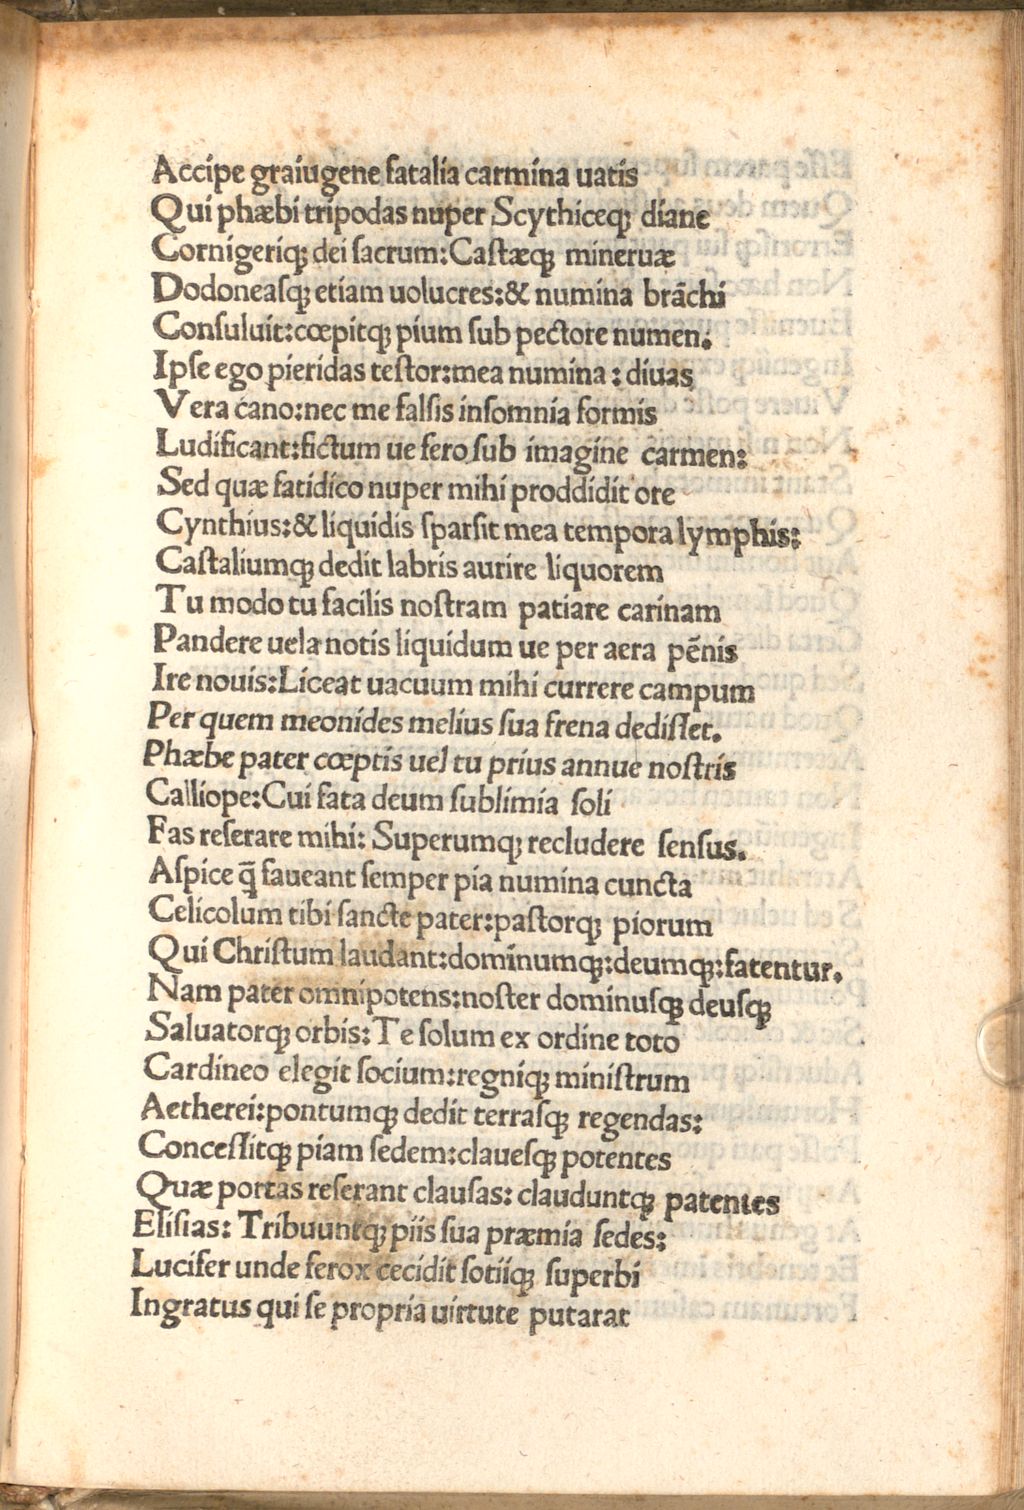 Accipe graiugene fatalia carmina uatis
Qui phæbi tripodas nuper Scythiceqꝫ diane
Cornigeriqꝫ dei sacrum:Castæqꝫ mineruæ
Dodoneasqꝫ etiam uolucres:& numina brāchi
Consuluit:cœpitqꝫ pium sub pectore numen:
Ipse ego pieridas testor:mea numina : diuas
Vera cano:nec me falsis insomnia formis
Ludificant:fictum ue fero sub imagine carmen:
Sed quæ fatidico nuper mihi proddidit ore
Cynthius:& liquidis sparsit mea tempora lymphis:
Castaliumqꝫ dedit labris aurire liquorem
Tu modo tu facilis nostram patiare carinam
Pandere uela notis liquidum ue per aera pēnis
Ire nouis:Liceat uacuum mihi currere campum
Per quem meonides melius sua frena dedisset.
Phæbe pater cœptis uel tu prius annue nostris
Calliope:Cui fata deum sublimia soli
Fas reserare mihi: Superumqꝫ recludere sensus.
Aspice q̄ faueant semper pia numina cuncta
Celicolum tibi sancte pater:pastorqꝫ piorum
Qui Christum laudant:dominumqꝫ:deumqꝫ:fatentur.
Nam pater omnipotens:noster dominusqꝫ deusqꝫ
Saluatorqꝫ orbis: Te solum ex ordine toto
Cardineo elegit socium:regniqꝫ ministrum
Aetherei:pontumqꝫ dedit terrasqꝫ regendas:
Concessitqꝫ piam sedem:clauesqꝫ potentes
Quæ portas reserant clausas: clauduntqꝫ patentes
Elisias: Tribuuntqꝫ piis sua præmia sedes:
Lucifer unde ferox cecidit sotiiqꝫ superbi
Ingratus qui se propria uirtute putarat